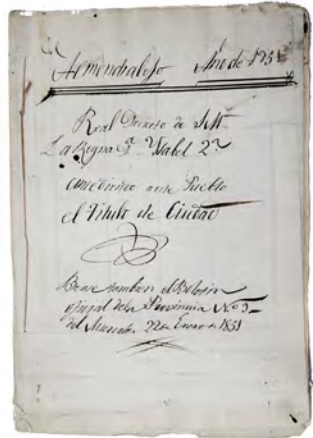 Almendralejo Año de 1851
Real Decreto de S.M.
La Reyna Dª Ysabel 2ª
concediendo a este Pueblo
el Titulo de Ciudad
Vease tambien el Boletin
oficial de la Provincia Nº 9
del Miercoles 22 de Enero de 1851